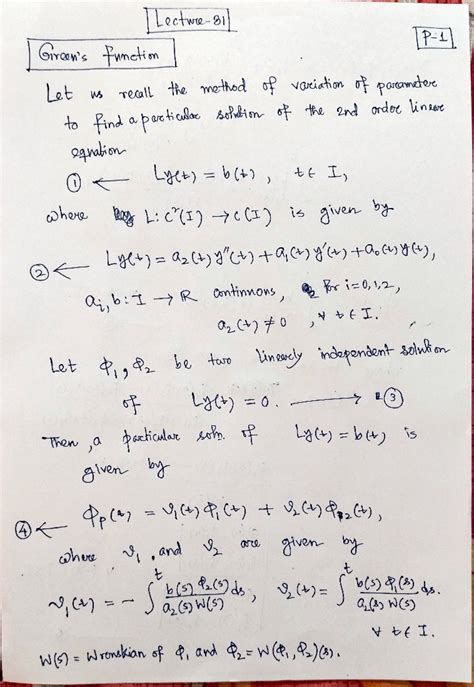 Lecture-31
P-1
Green's function
Let us recall the method of variation of parameter
to find a particular solution of the 2nd order linear
equation
① ← Ly(t) = b(t), t ∈ I,
where L: C²(I) → C(I) is given by
② ← Ly(t) = a₂(t)y''(t) + a₁(t)y'(t) + a₀(t)y(t),
aᵢ, b: I → R continuous, for i=0,1,2,
a₂(t) ≠ 0, ∀ t ∈ I.
Let ϕ₁, ϕ₂ be two linearly independent solution
of Ly(t) = 0. → ③
Then, a particular soln. of Ly(t) = b(t) is
given by
④ ← ϕₚ(t) = v₁(t) ϕ₁(t) + v₂(t) ϕ₂(t),
where v₁ and v₂ are given by
v₁(t) = - ∫ᵗ b(s) ϕ₂(s) / a₂(s) W(s) ds, v₂(t) = ∫ᵗ b(s) ϕ₁(s) / a₂(s) W(s) ds.
∀ t ∈ I.
W(s) = Wronskian of ϕ₁ and ϕ₂ = W(ϕ₁, ϕ₂)(s).